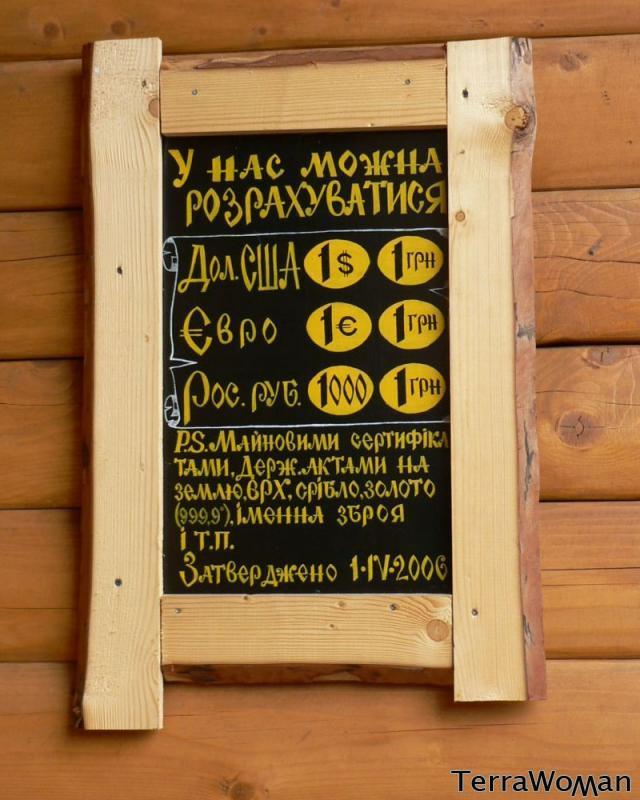 У НАС МОЖНА
РОЗРАХУВАТИСЯ
Дол. США 1$ 1 ГРН
Євро 1€ 1 ГРН
Рос. руб. 1000 1 ГРН
P.S. Майновими сертифіка
тами, Держ. актами на
землю, ВРХ, срібло, золото
(999,9°), іменна зброя
і т.п.
Затверджено 1·IV·2006
TerraWoman